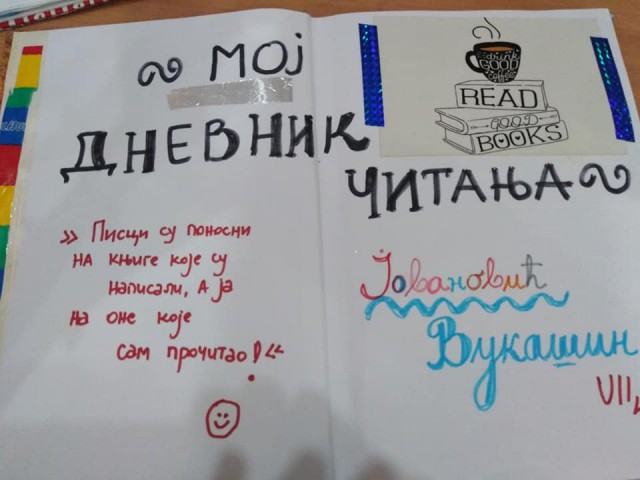 ~ МОЈ
ДНЕВНИК
ЧИТАЊА ~
drink
GOOD
Coffee
READ
GOOD
BOOKS
» Писци су поносни
на књиге које су
написали, а ја
на оне које
сам прочитао!«
Јовановић
Вукашин
VII